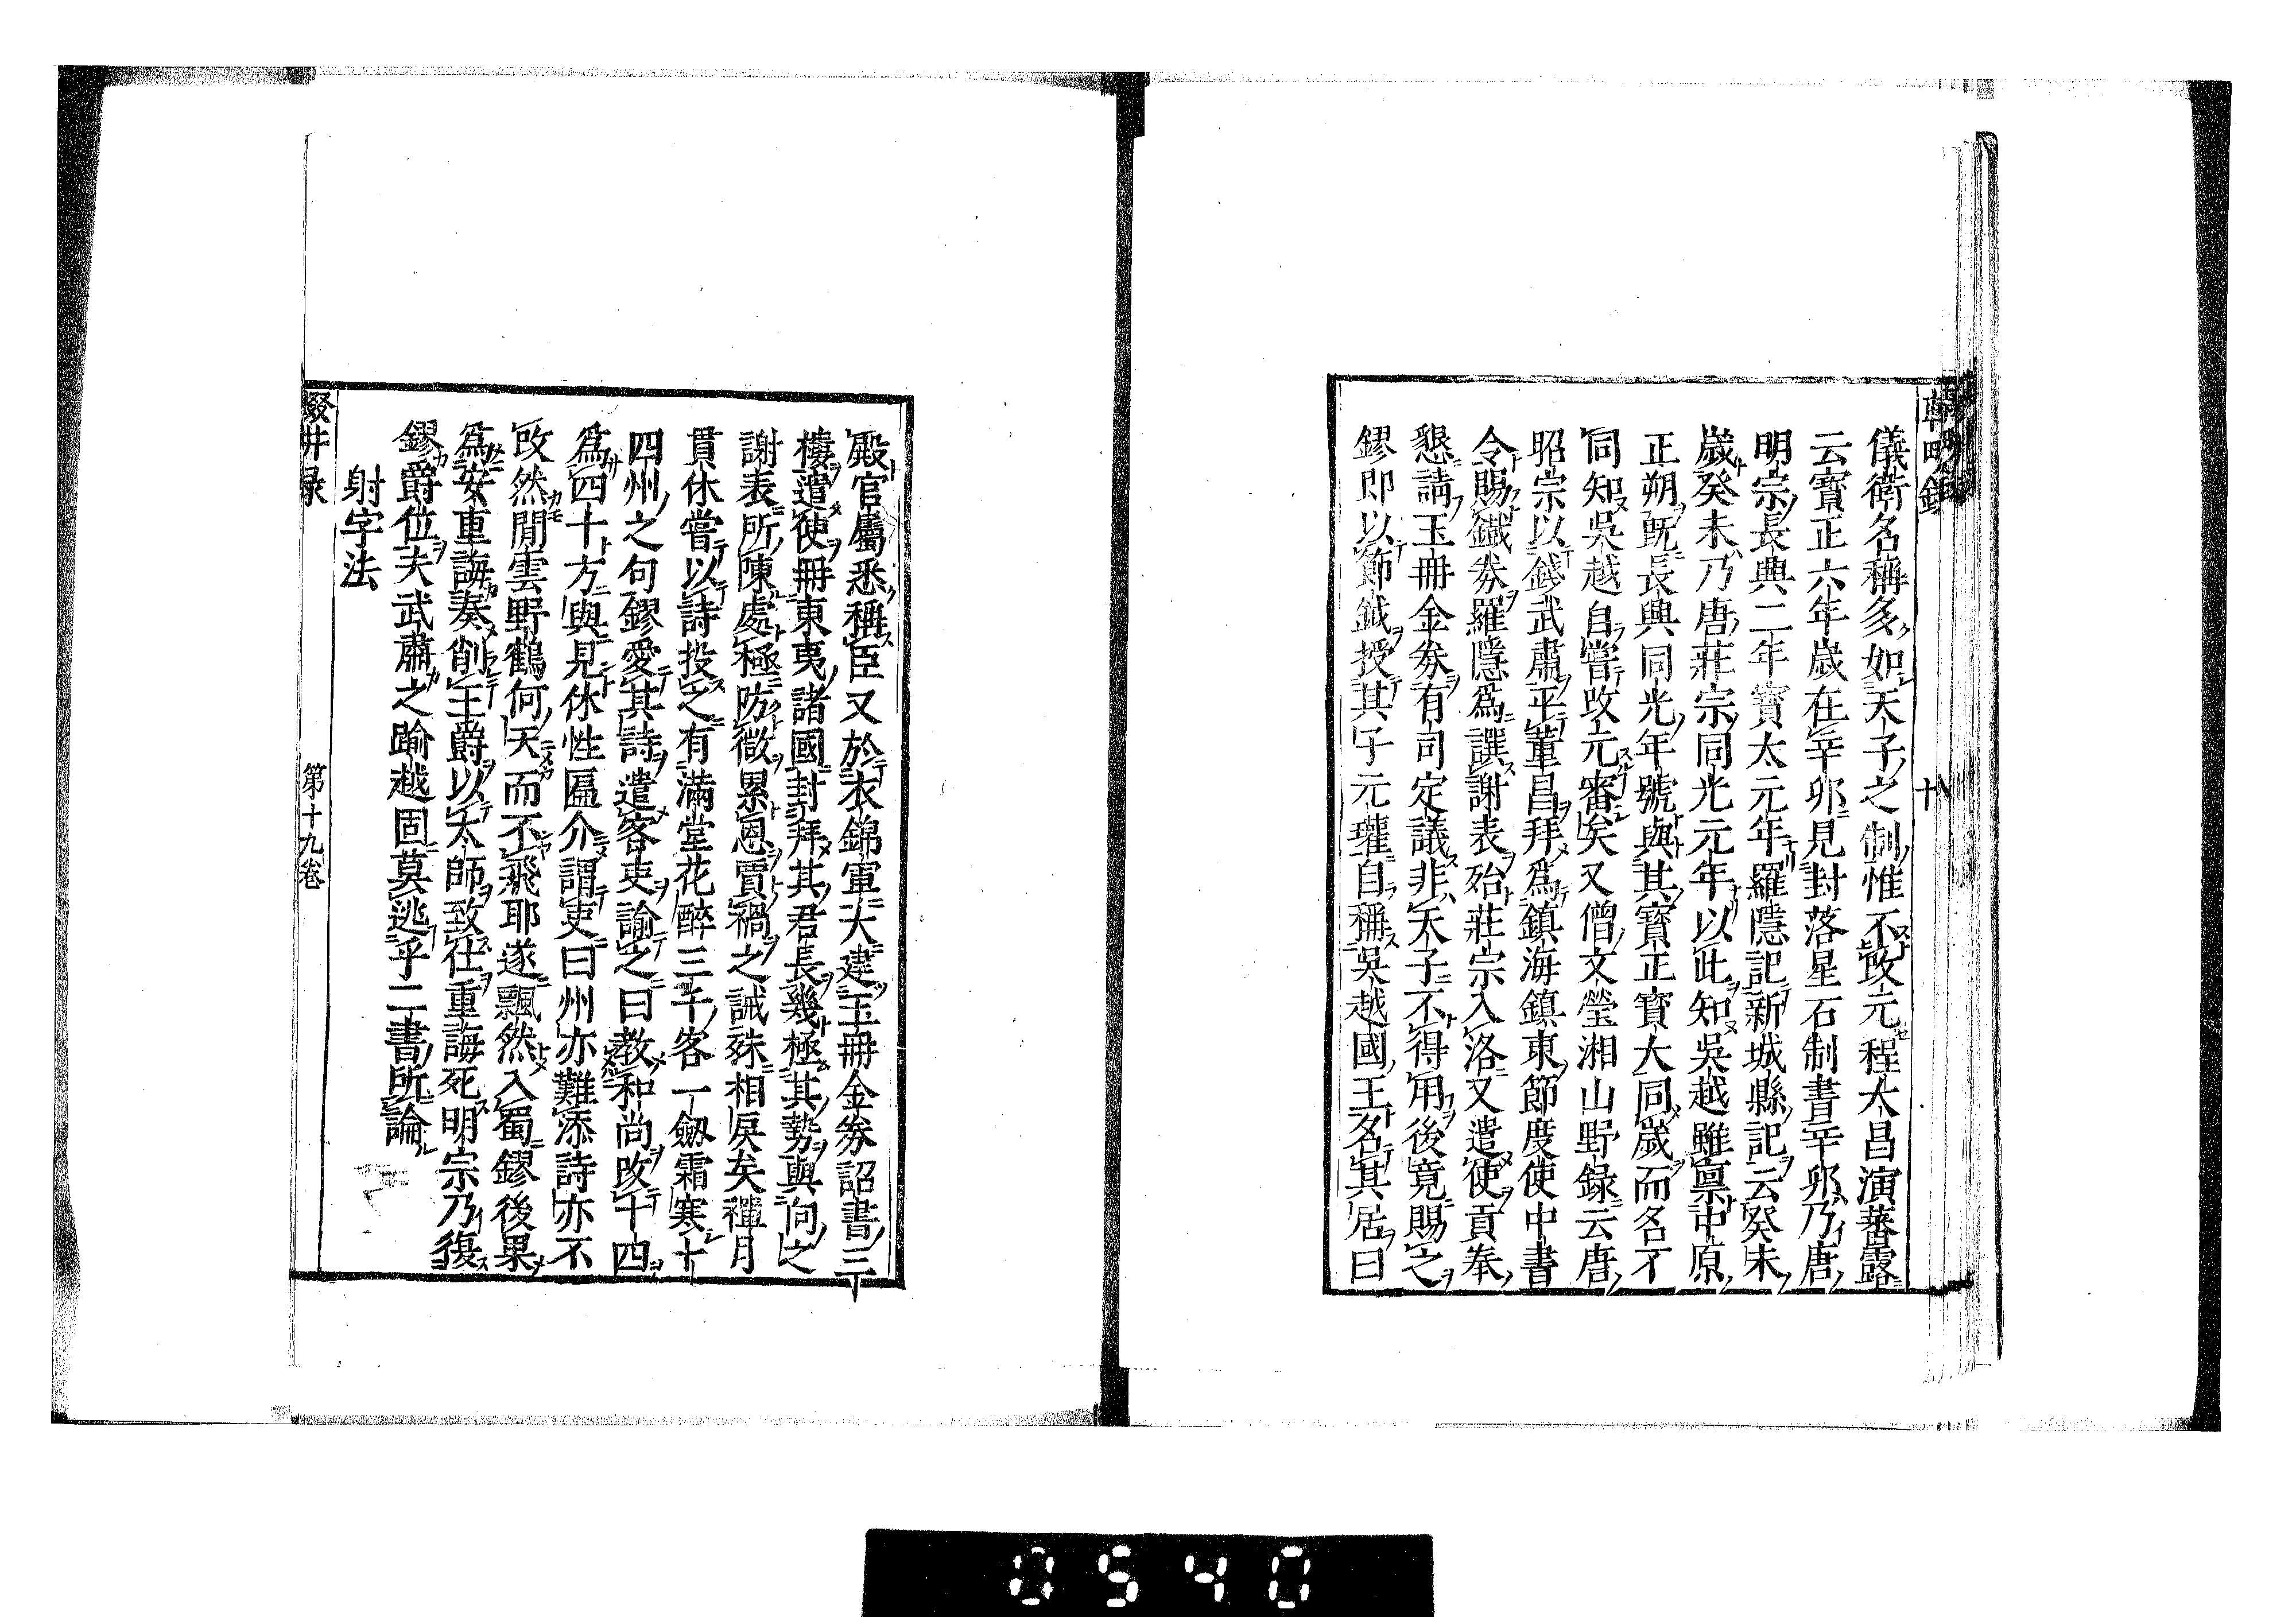 儀衛名稱多如天子之制惟不改元程大昌演蕃露
云寶正六年歲在辛卯見封落星石制書辛卯乃唐
明宗長興二年寶太元年羅隱記新城縣記云癸未
歲癸未乃唐莊宗同光元年以此知吳越雖禀中原
正朔旣長興同光年號與其寶正寶大同歲而名不
同知吳越自嘗改元審矣又僧文瑩湘山野録云唐
昭宗以錢武肅平董昌拜爲鎮海鎮東節度使中書
令賜鐵劵羅隱爲譔謝表殆莊宗入洛又遣使貢奉
懇請玉冊金劵有司定議非天子不得用後竟賜之
鏐即以節鉞授其子元瓘自稱吳越國王名其居曰
十八
殿官屬悉稱臣又於衣錦軍大建玉冊金劵詔書三
樓遣使冊東夷諸國封拜其君長幾極其勢與向之
謝表所陳處極防微累恩賈禍之誡殊相戾矣禪月
貫休嘗以詩投之有滿堂花醉三千客一劔霜寒十
四州之句鏐愛其詩遣客吏諭之曰教和尚改十四
爲四十方與見休性匾介謂吏曰州亦難添詩亦不
改然閒雲野鶴何天而不飛耶遂飄然入蜀鏐後果
爲安重誨奏削王爵以太師致仕重誨死明宗乃復
鏐爵位夫武肅之踰越固莫逃乎二書所論
射字法
第十九卷
0540